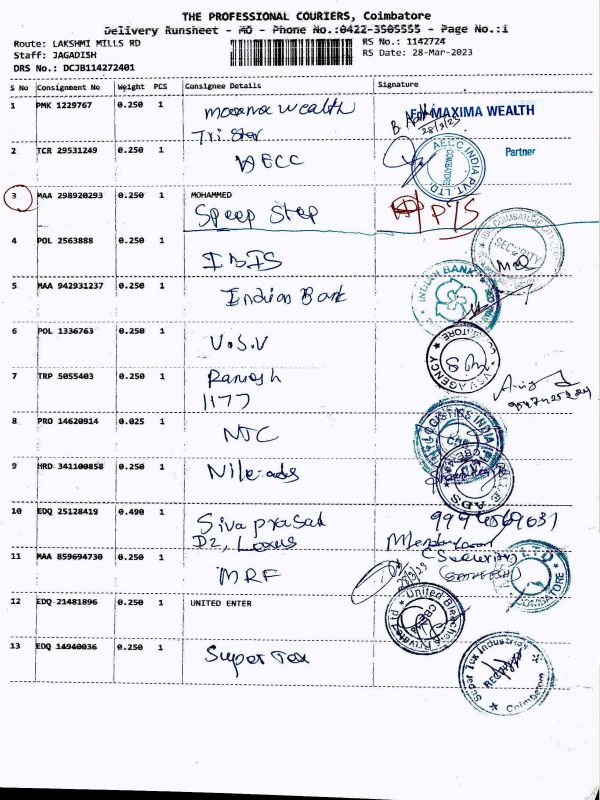 THE PROFESSIONAL COURIERS, Coimbatore
Delivery Runsheet - MO - Phone No.:0422-3505555 - Page No.:1
Route: LAKSHMI MILLS RD
RS No.: 1142724
Staff: JAGADISH
RS Date: 28-Mar-2023
DRS No.: DCJB114272401
S No Consignment No Weight PCS Consignee Details Signature
1 PMK 1229767 0.250 1 For MAXIMA WEALTH
28/3/23
Tri Star
Partner
2 TCR 29531249 0.250 1 AECC
AECC INDIA PVT LTD. COIMBATORE
3 MAA 298920293 0.250 1 MOHAMMED
Speep Step P/S
4 POL 2563888 0.250 1 IDIS
SECURITY
5 MAA 942931237 0.250 1 Indian Bank
INDIAN BANK
6 POL 1336763 0.250 1 V.S.V
VSV AGENCY
7 TRP 5055403 0.250 1 Ramesh
1177
8 PRO 14620914 0.025 1 NTC
LOGISTICS INDIA
9 HRD 341100858 0.250 1
ADS
10 EDQ 25128419 0.490 1 Siva prasad
D2, Lexus
(Security)
11 MAA 859694730 0.250 1 MRF
28/3/23
COIMBATORE
12 EDQ 21481896 0.250 1 UNITED ENTER
United Bleachers Private Ltd
CBE
13 EDQ 14940036 0.250 1 Super Tex
Super Tex Industries
Coimbatore